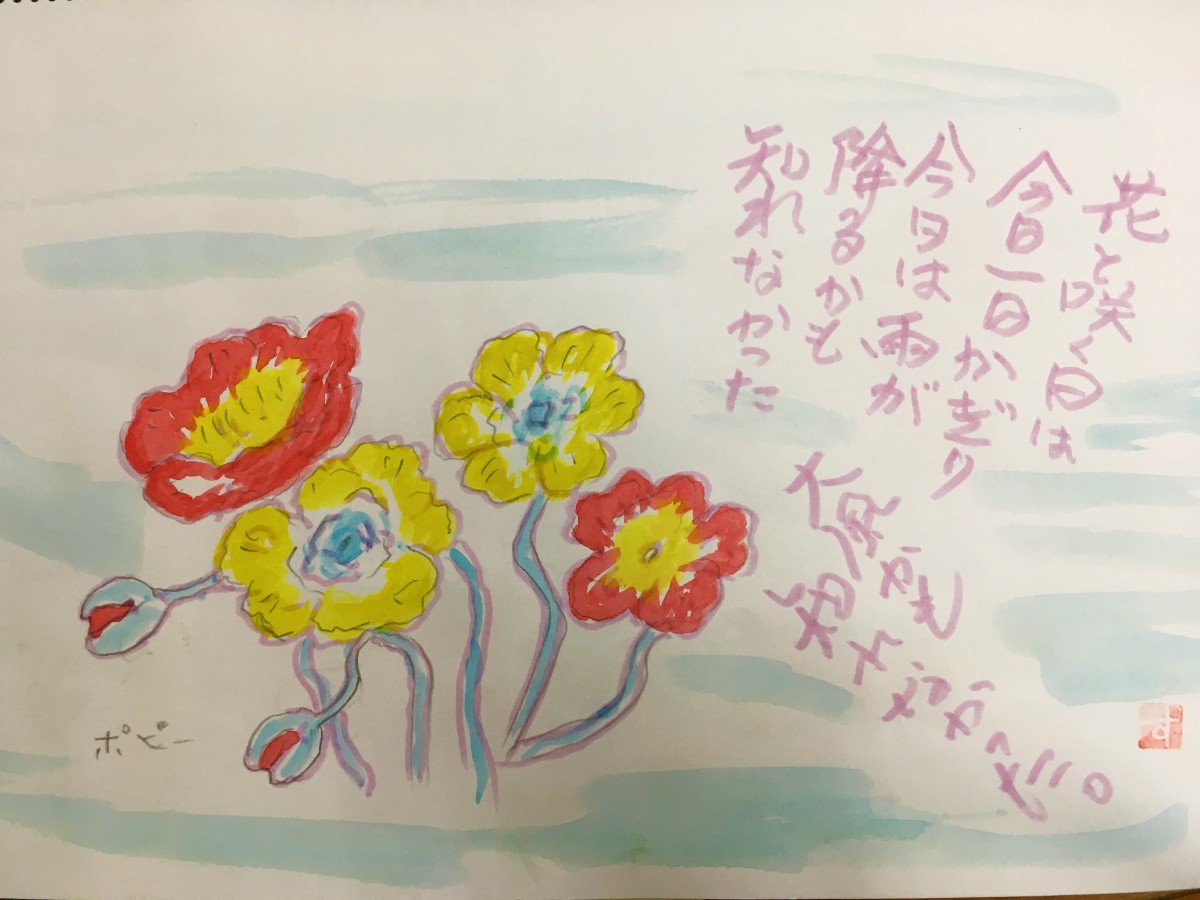 花と咲く日は
今日一日かぎり
今日は雨が
降るかも
知れなかった
ポピー
す